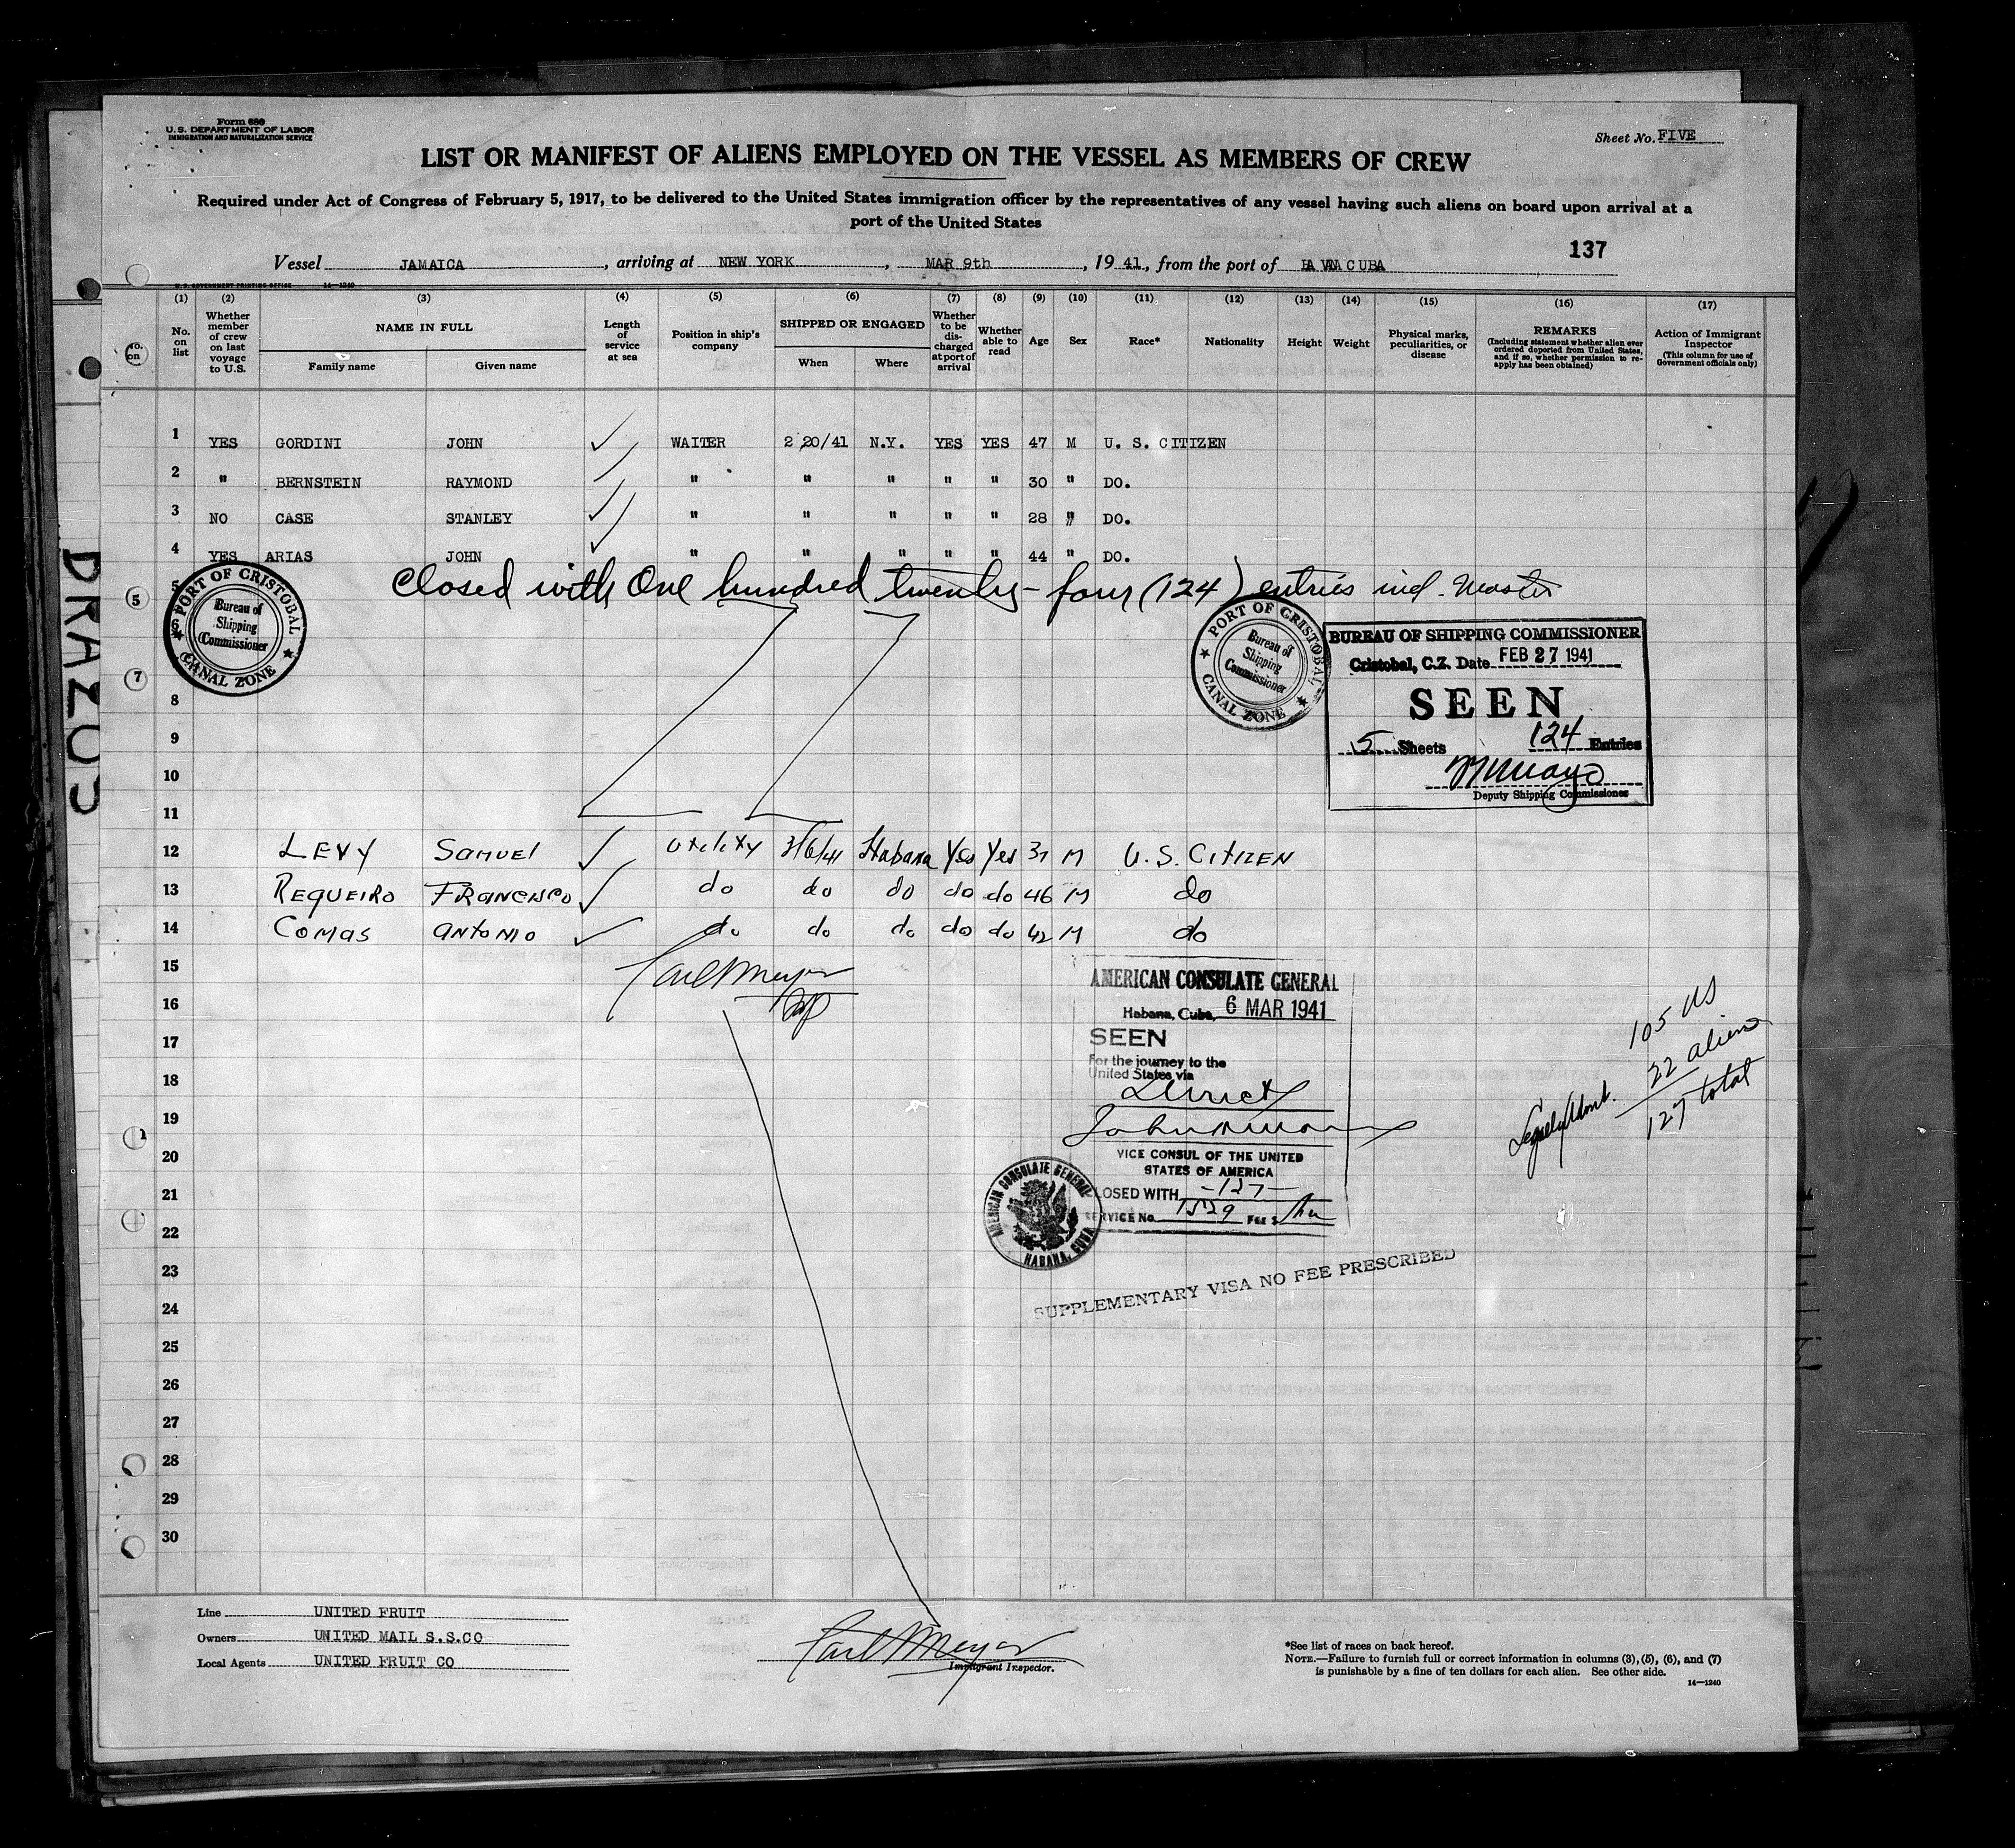 Form 680
U.S. DEPARTMENT OF LABOR
IMMIGRATION AND NATURALIZATION SERVICE
Sheet No. FIVE
LIST OR MANIFEST OF ALIENS EMPLOYED ON THE VESSEL AS MEMBERS OF CREW
Required under Act of Congress of February 5, 1917, to be delivered to the United States immigration officer by the representatives of any vessel having such aliens on board upon arrival at a
port of the United States
137
Vessel JAMAICA, arriving at NEW YORK, MAR 9th, 1941, from the port of CUBA
U. S. GOVERNMENT PRINTING OFFICE 14—1240
(1) (2) (3) (4) (5) (6) (7) (8) (9) (10) (11) (12) (13) (14) (15) (16) (17)
No. on list
Whether member of crew on last voyage to U.S.
NAME IN FULL
Family name
Given name
Length of service at sea
Position in ship's company
SHIPPED OR ENGAGED
When
Where
Whether to be discharged at port of arrival
Whether able to read
Age
Sex
Race*
Nationality
Height
Weight
Physical marks, peculiarities, or disease
REMARKS
(Including statement whether alien ever ordered deported from United States, and if so, whether permission to reapply has been obtained)
Action of Immigrant Inspector
(This column for use of Government officials only)
1 YES GORDINI JOHN WAITER 2 20/41 N.Y. YES YES 47 M U. S. CITIZEN
2 " BERNSTEIN RAYMOND " " " " " 30 " DO.
3 NO CASE STANLEY " " " " " 28 " DO.
4 YES ARIAS JOHN " " " " " 44 " DO.
Closed with One hundred twenty-four (124) entries incl. Master
5
6
7
PORT OF CRISTOBAL
Bureau of
Shipping
Commissioner
CANAL ZONE
PORT OF CRISTOBAL
Bureau of
Shipping
Commissioner
CANAL ZONE
BUREAU OF SHIPPING COMMISSIONER
Cristobal, C.Z. Date FEB 27 1941
SEEN
5 Sheets 124 Entries
Deputy Shipping Commissioner
8
9
10
11
12 LEVY SAMUEL Utility 3/6/41 Habana Yes Yes 31 M U.S. CITIZEN
13 REQUEIRO FRANCISCO do do do do do 46 M do
14 COMAS ANTONIO do do do do do 42 M do
15 Carl Meyer
16
17
18
19
20
21
22
23
24
25
26
27
28
29
30
AMERICAN CONSULATE GENERAL
Habana, Cuba, 6 MAR 1941
SEEN
For the journey to the
United States via
Direct
VICE CONSUL OF THE UNITED
STATES OF AMERICA
CLOSED WITH -127-
SERVICE No. 1529 FEE $
AMERICAN CONSULATE GENERAL
HABANA, CUBA
SUPPLEMENTARY VISA NO FEE PRESCRIBED
105 US
22 aliens
127 total
Line UNITED FRUIT
Owners UNITED MAIL S.S.CO
Local Agents UNITED FRUIT CO
Carl Meyer
Immigrant Inspector.
*See list of races on back hereof.
NOTE.—Failure to furnish full or correct information in columns (3), (5), (6), and (7)
is punishable by a fine of ten dollars for each alien. See other side.
14—1240